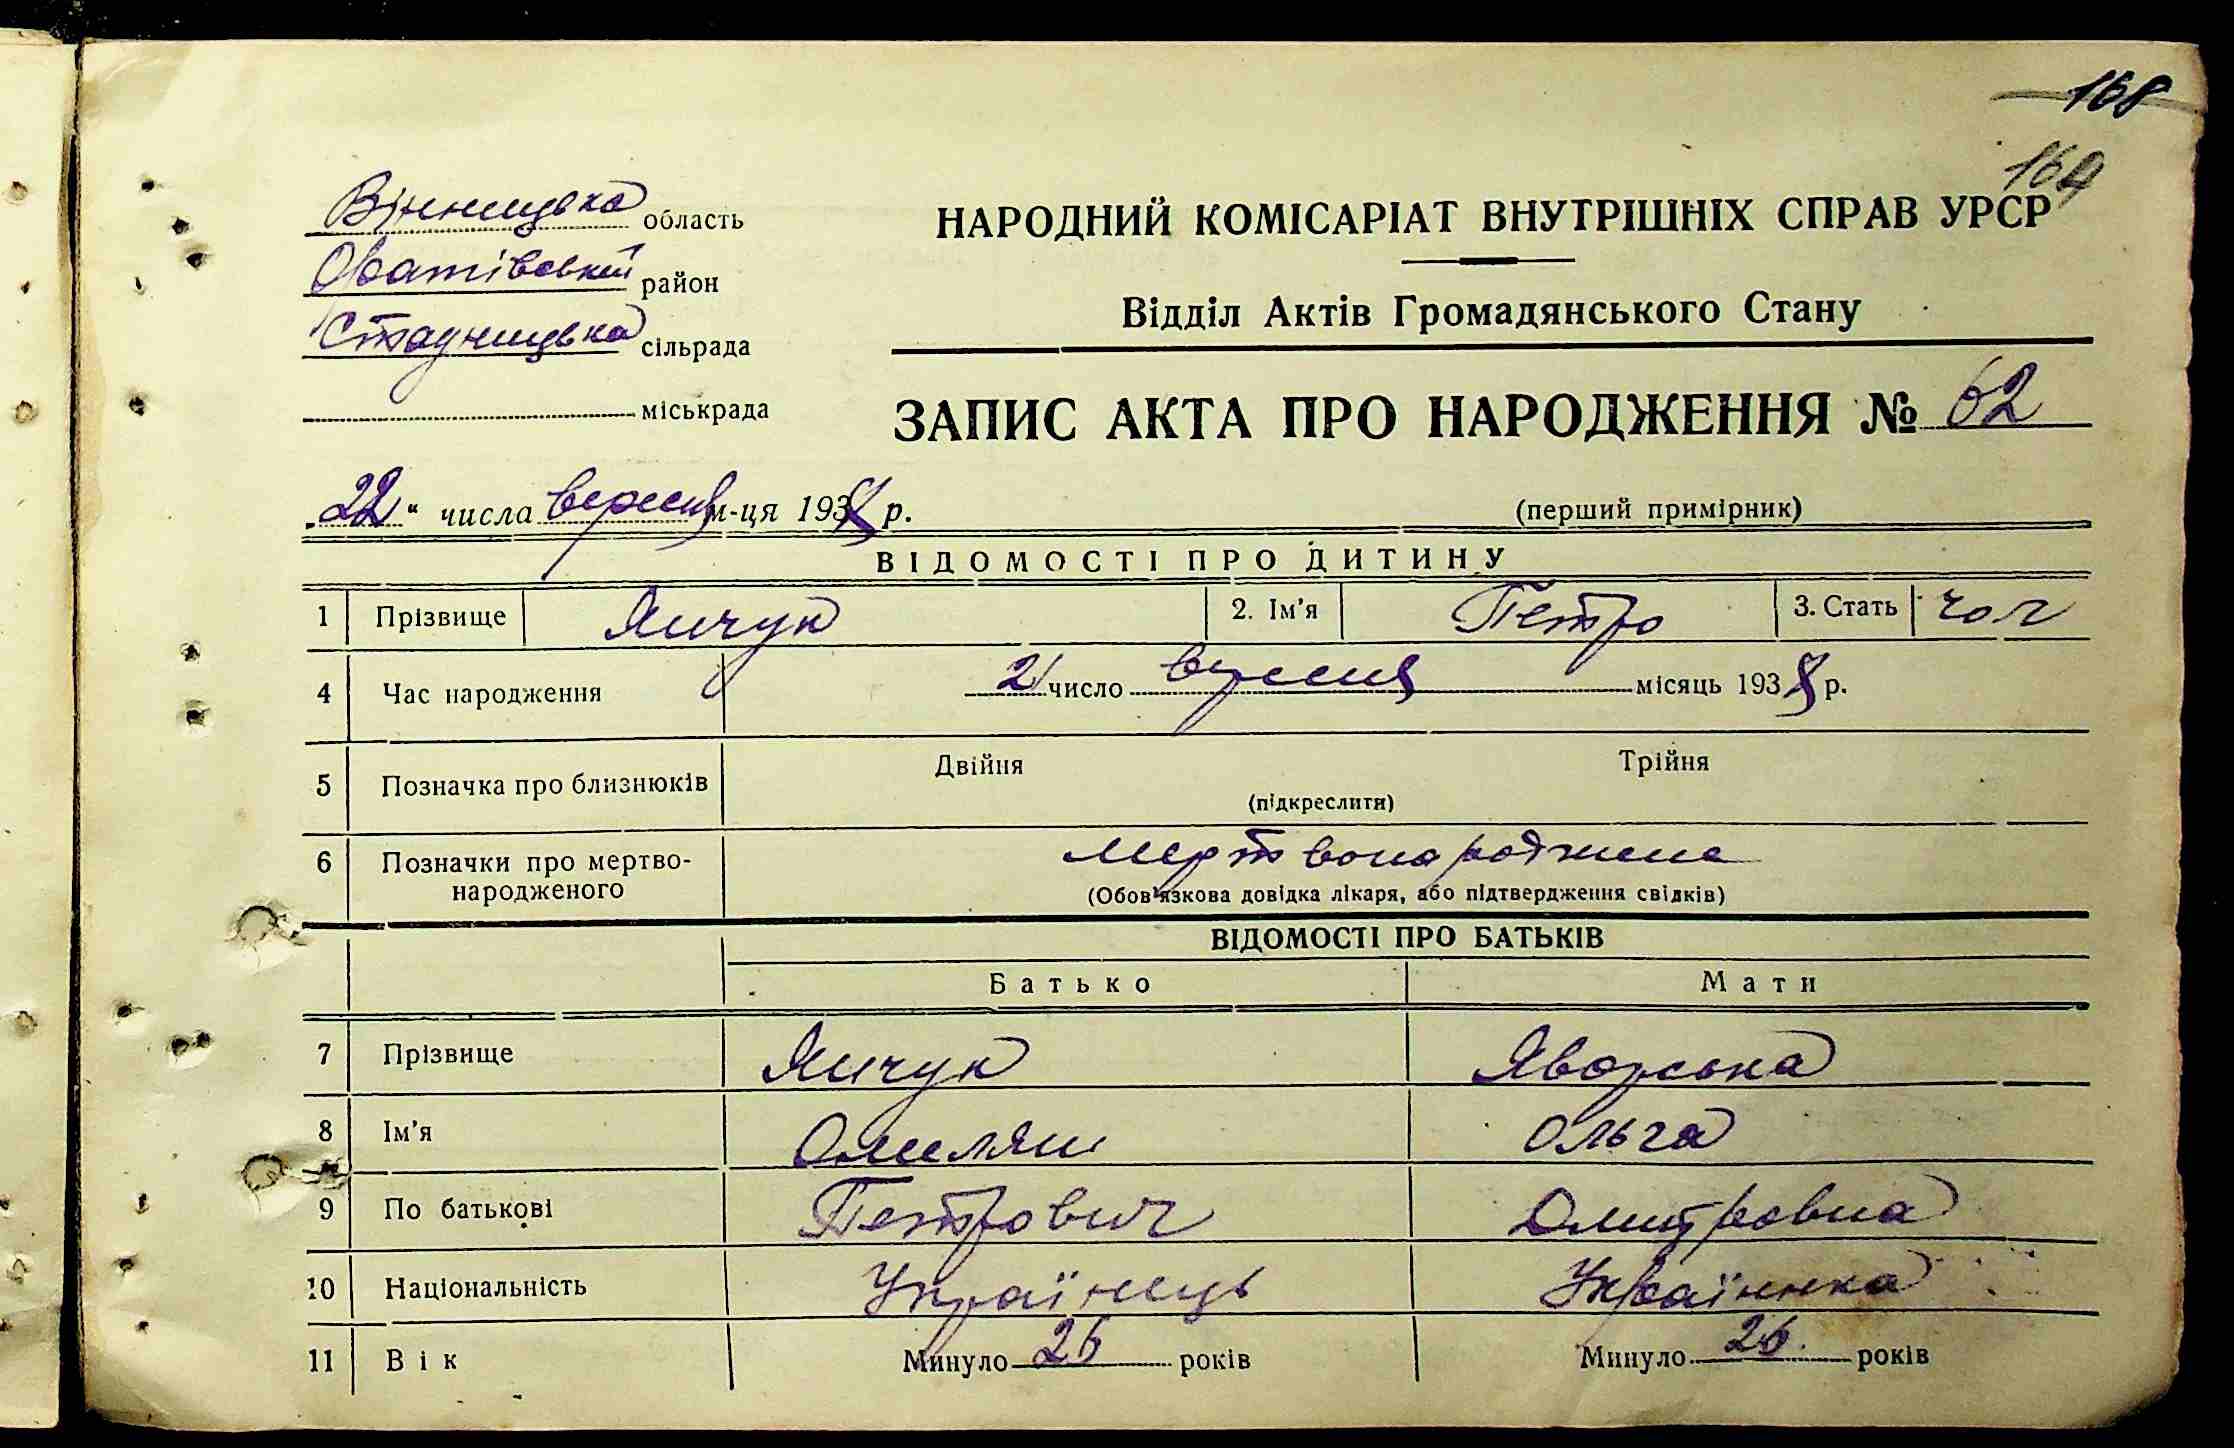 168
164
Вінницька область
Оратівський район
Стадницька сільрада
міськрада
НАРОДНИЙ КОМІСАРІАТ ВНУТРІШНІХ СПРАВ УРСР
Відділ Актів Громадянського Стану
ЗАПИС АКТА ПРО НАРОДЖЕННЯ № 62
„22“ числа вересня м-ця 1938 р.
(перший примірник)
ВІДОМОСТІ ПРО ДИТИНУ
1 Прізвище Янчук 2. Ім'я Петро 3. Стать чол
4 Час народження 21 число вересня місяць 1938 р.
5 Позначка про близнюків Двійня Трійня
(підкреслити)
6 Позначки про мертво-народженого мертвонароджене
(Обов'язкова довідка лікаря, або підтвердження свідків)
ВІДОМОСТІ ПРО БАТЬКІВ
Батько Мати
7 Прізвище Янчук Яворська
8 Ім'я Омелян Ольга
9 По батькові Петрович Дмитровна
10 Національність Українець Українка
11 Вік Минуло 26 років Минуло 26 років